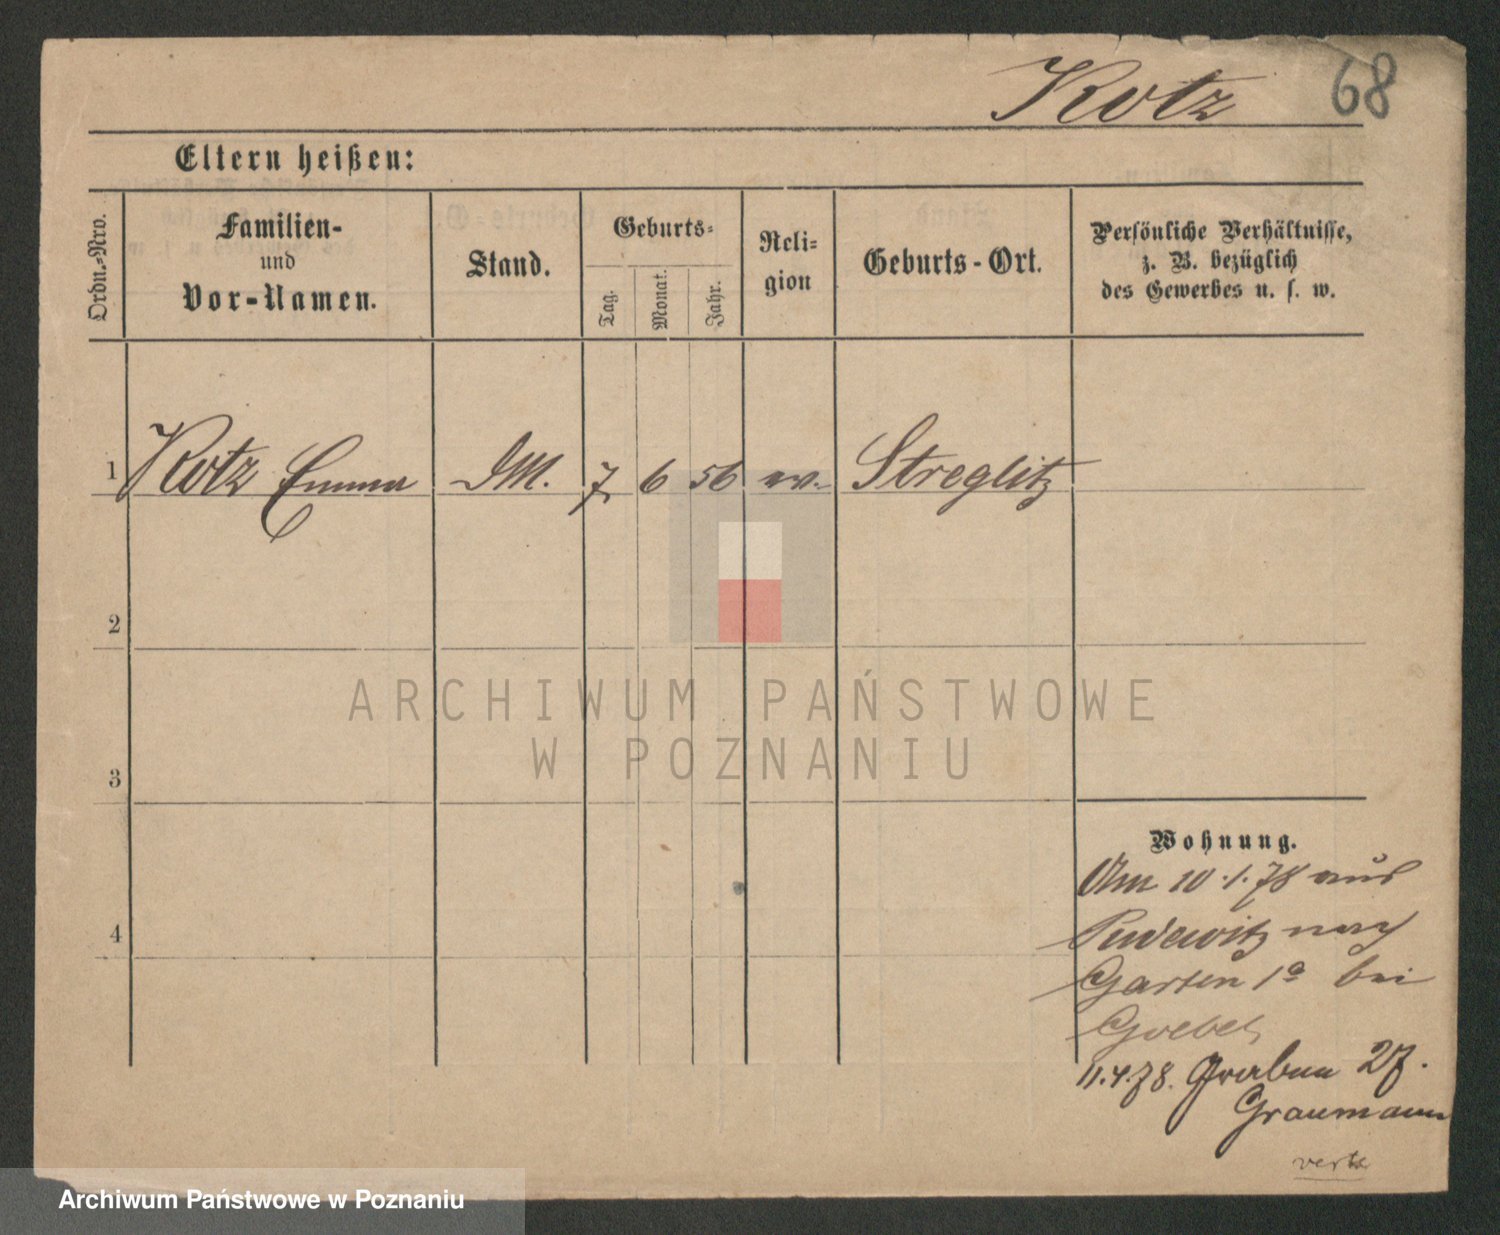 Kotz 68
Eltern heißen:
Ordn.-Nro.
Familien-
und
Vor-Namen.
Stand.
Geburts-
Tag.
Monat.
Jahr.
Reli-
gion
Geburts-Ort.
Persönliche Verhältnisse,
z. B. bezüglich
des Gewerbes u. s. w.
1 Kotz Emma DM. 7 6 56 ev. Streglitz
2
3
4
ARCHIWUM PAŃSTWOWE
W POZNANIU
Wohnung.
Am 10.1.78 aus
Pudewitz nach
Garten 1a bei
Goebel
11.4.78. Graben 27.
Graumann
Archiwum Państwowe w Poznaniu